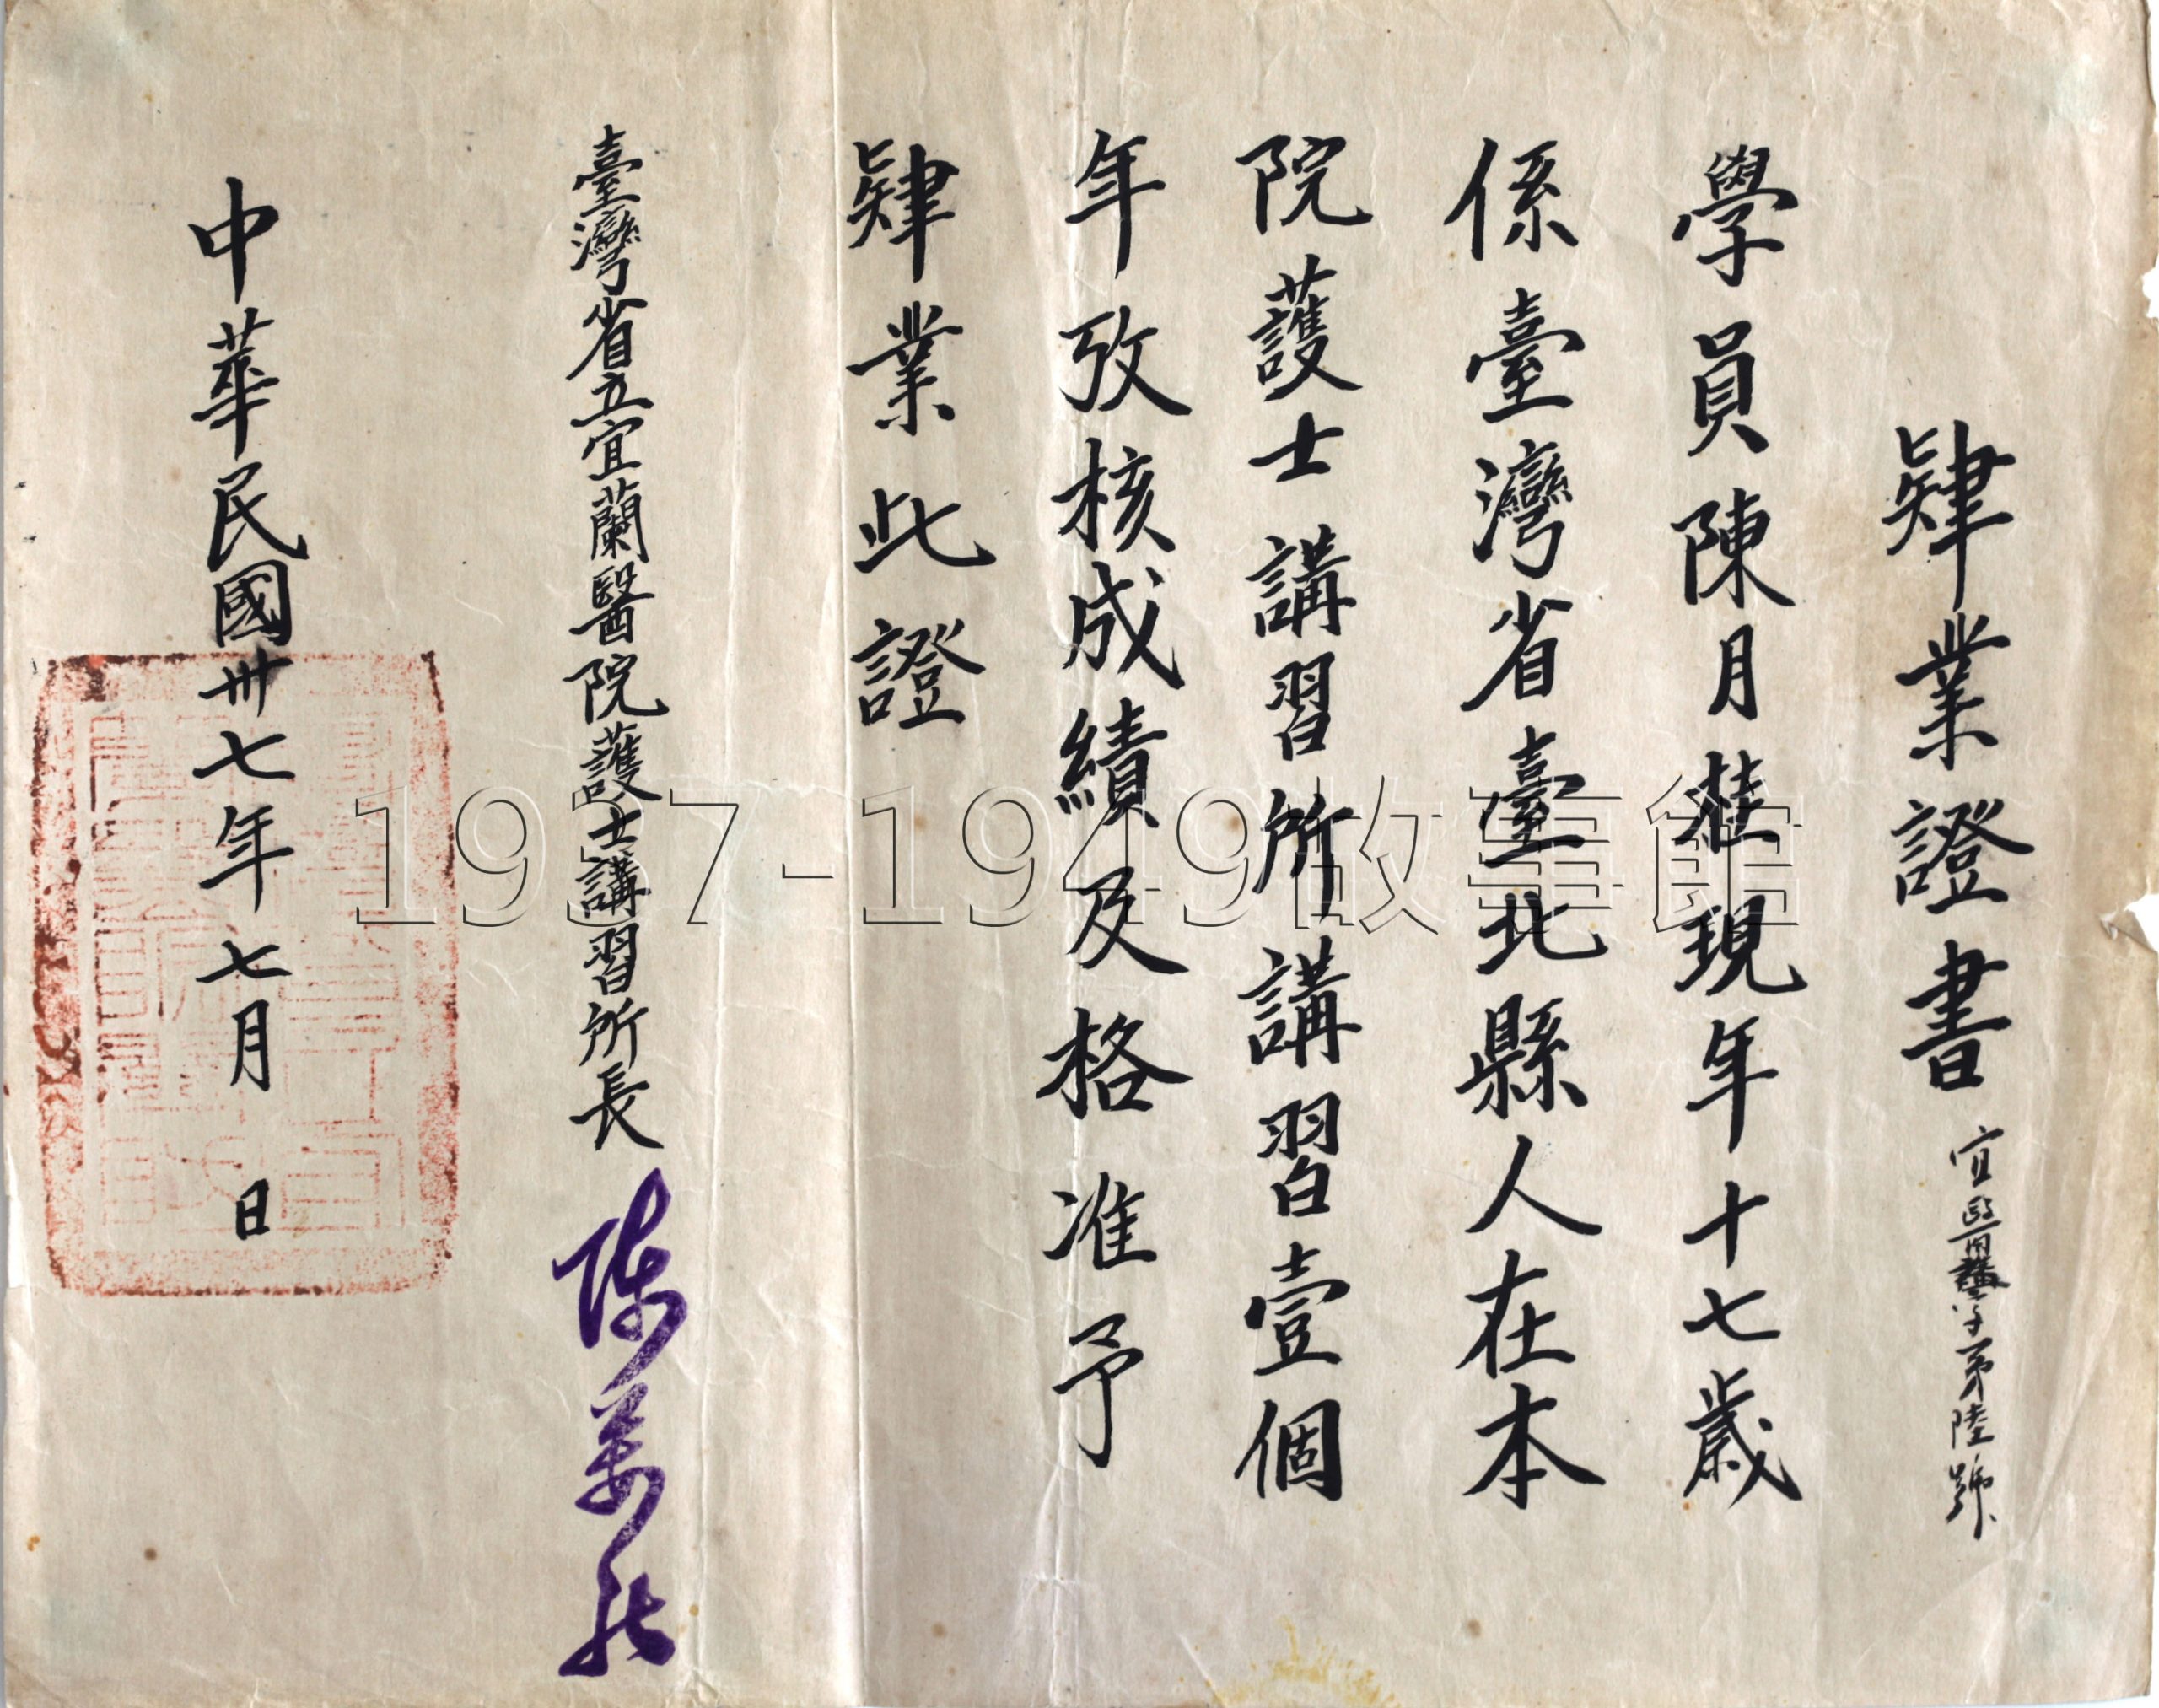 肄業證書 宜醫護字第陸號
學員陳月桂現年十七歲
係臺灣省臺北縣人在本
院護士講習所講習壹個
年攷核成績及格准予
肄業此證
臺灣省立宜蘭醫院護士講習所長 陳萬
中華民國卅七年七月 日
1937-1949故事館